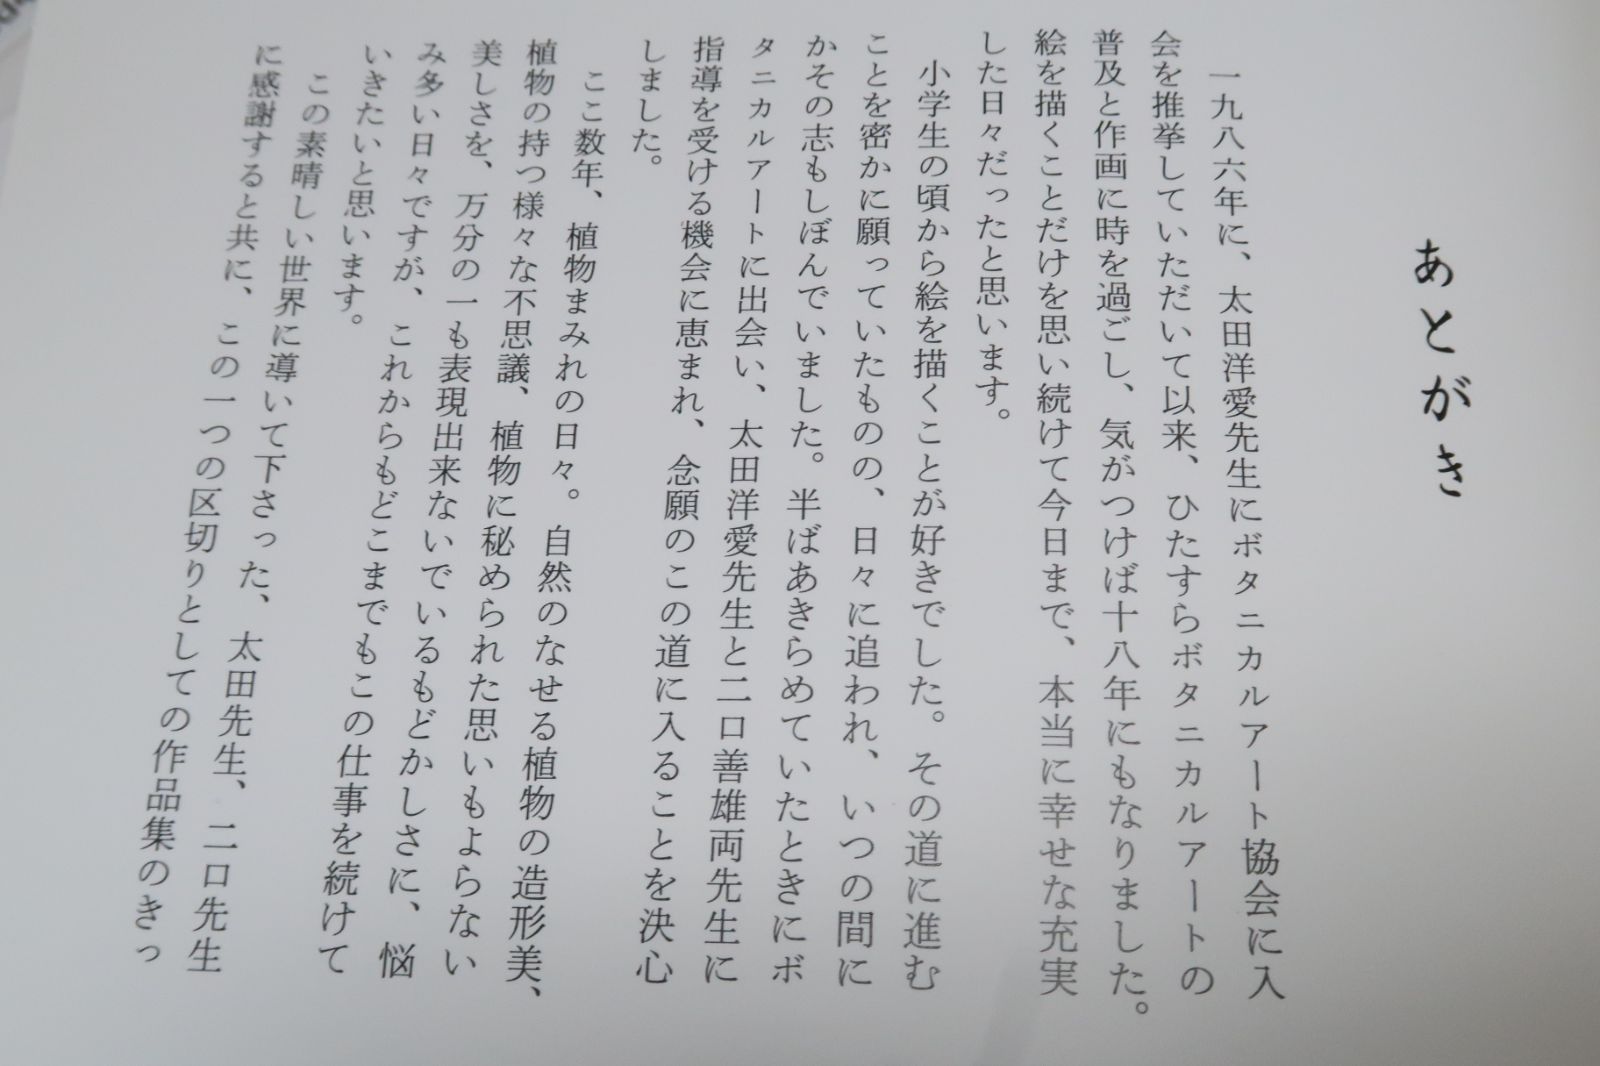 あとがき
一九八六年に、太田洋愛先生にボタニカルアート協会に入
会を推挙していただいて以来、ひたすらボタニカルアートの
普及と作画に時を過ごし、気がつけば十八年にもなりました。
絵を描くことだけを思い続けて今日まで、本当に幸せな充実
した日々だったと思います。
小学生の頃から絵を描くことが好きでした。その道に進む
ことを密かに願っていたものの、日々に追われ、いつの間に
かその志もしぼんでいました。半ばあきらめていたときにボ
タニカルアートに出会い、太田洋愛先生と二口善雄両先生に
指導を受ける機会に恵まれ、念願のこの道に入ることを決心
しました。
ここ数年、植物まみれの日々。自然のなせる植物の造形美、
植物の持つ様々な不思議、植物に秘められた思いもよらない
美しさを、万分の一も表現出来ないでいるもどかしさに、悩
み多い日々ですが、これからもどこまでもこの仕事を続けて
いきたいと思います。
この素晴しい世界に導いて下さった、太田先生、二口先生
に感謝すると共に、この一つの区切りとしての作品集のきっ